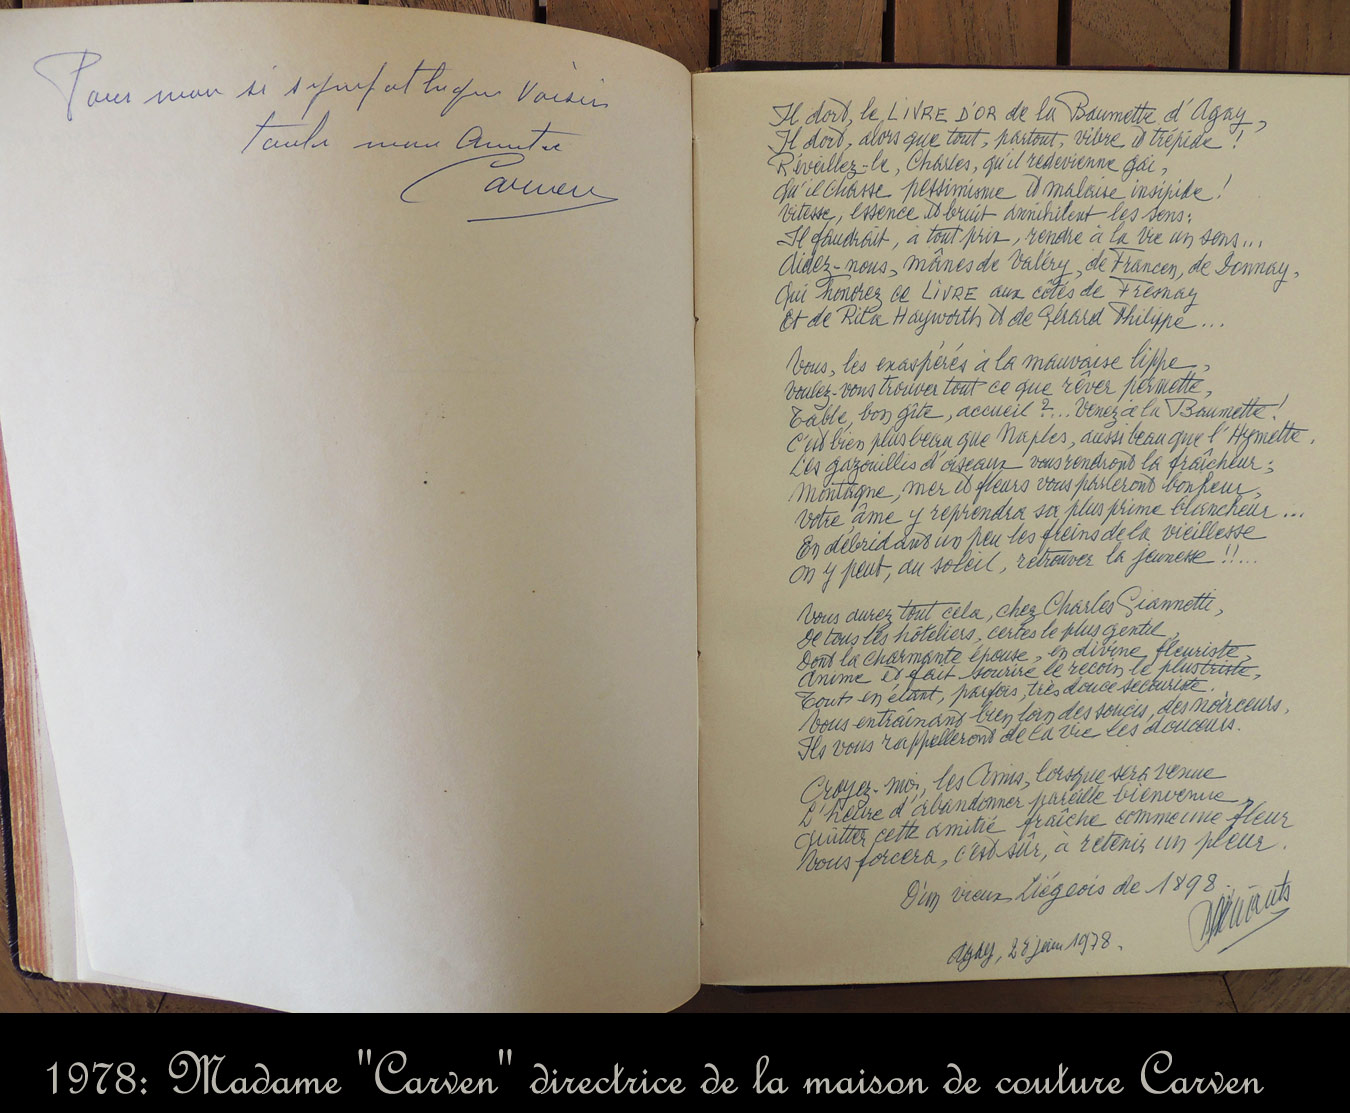 Pour mon si sympathique Voisin
toute mon Amitié
Carven
Il dort, le LIVRE D'OR de la Baumette d'Agay,
Il dort, alors que tout, partout, vibre et trépide !
Réveillez-le, Charles, qu'il redevienne gai,
Qu'il chasse pessimisme et malaise insipide !
Vitesse, essence et bruit annihilent les sens:
Il faudrait, à tout prix, rendre à la vie un sens...
Aidez-nous, mânes de Valéry, de Francen, de Donnay,
Qui honorez ce LIVRE aux côtés de Fresnay
Et de Rita Hayworth et de Gérard Philippe...
Vous, les exaspérés à la mauvaise lippe,
Voulez-vous trouver tout ce que rêver permette,
Table, bon gîte, accueil ?... Venez à la Baumette !
C'est bien plus beau que Naples, aussi beau que l'Hymette.
Les gazouillis d'oiseaux vous rendront la fraîcheur;
Montagne, mer et fleurs vous parleront bonheur,
Votre âme y reprendra sa plus prime blancheur...
En débridant un peu les freins de la vieillesse
On y peut, au soleil, retrouver la jeunesse !!...
Vous aurez tout cela, chez Charles Giannetti,
De tous les hôteliers, certes le plus gentil,
Dont la charmante épouse, en divine fleuriste,
Anime et fait sourire le recoin le plus triste,
Tout en étant, parfois, très douce secouriste.
Vous entraînant bien loin des soucis, des noirceurs,
Ils vous rappelleront de la vie les douceurs.
Croyez-moi, les Amis, lorsque sera venue
L'heure d'abandonner pareille bienvenue,
Quitter cette amitié fraîche comme une fleur
Vous forcera, c'est sûr, à retenir un pleur.
D'un vieux Liégeois de 1898
Agay, juin 1978.
1978: Madame "Carven" directrice de la maison de couture Carven